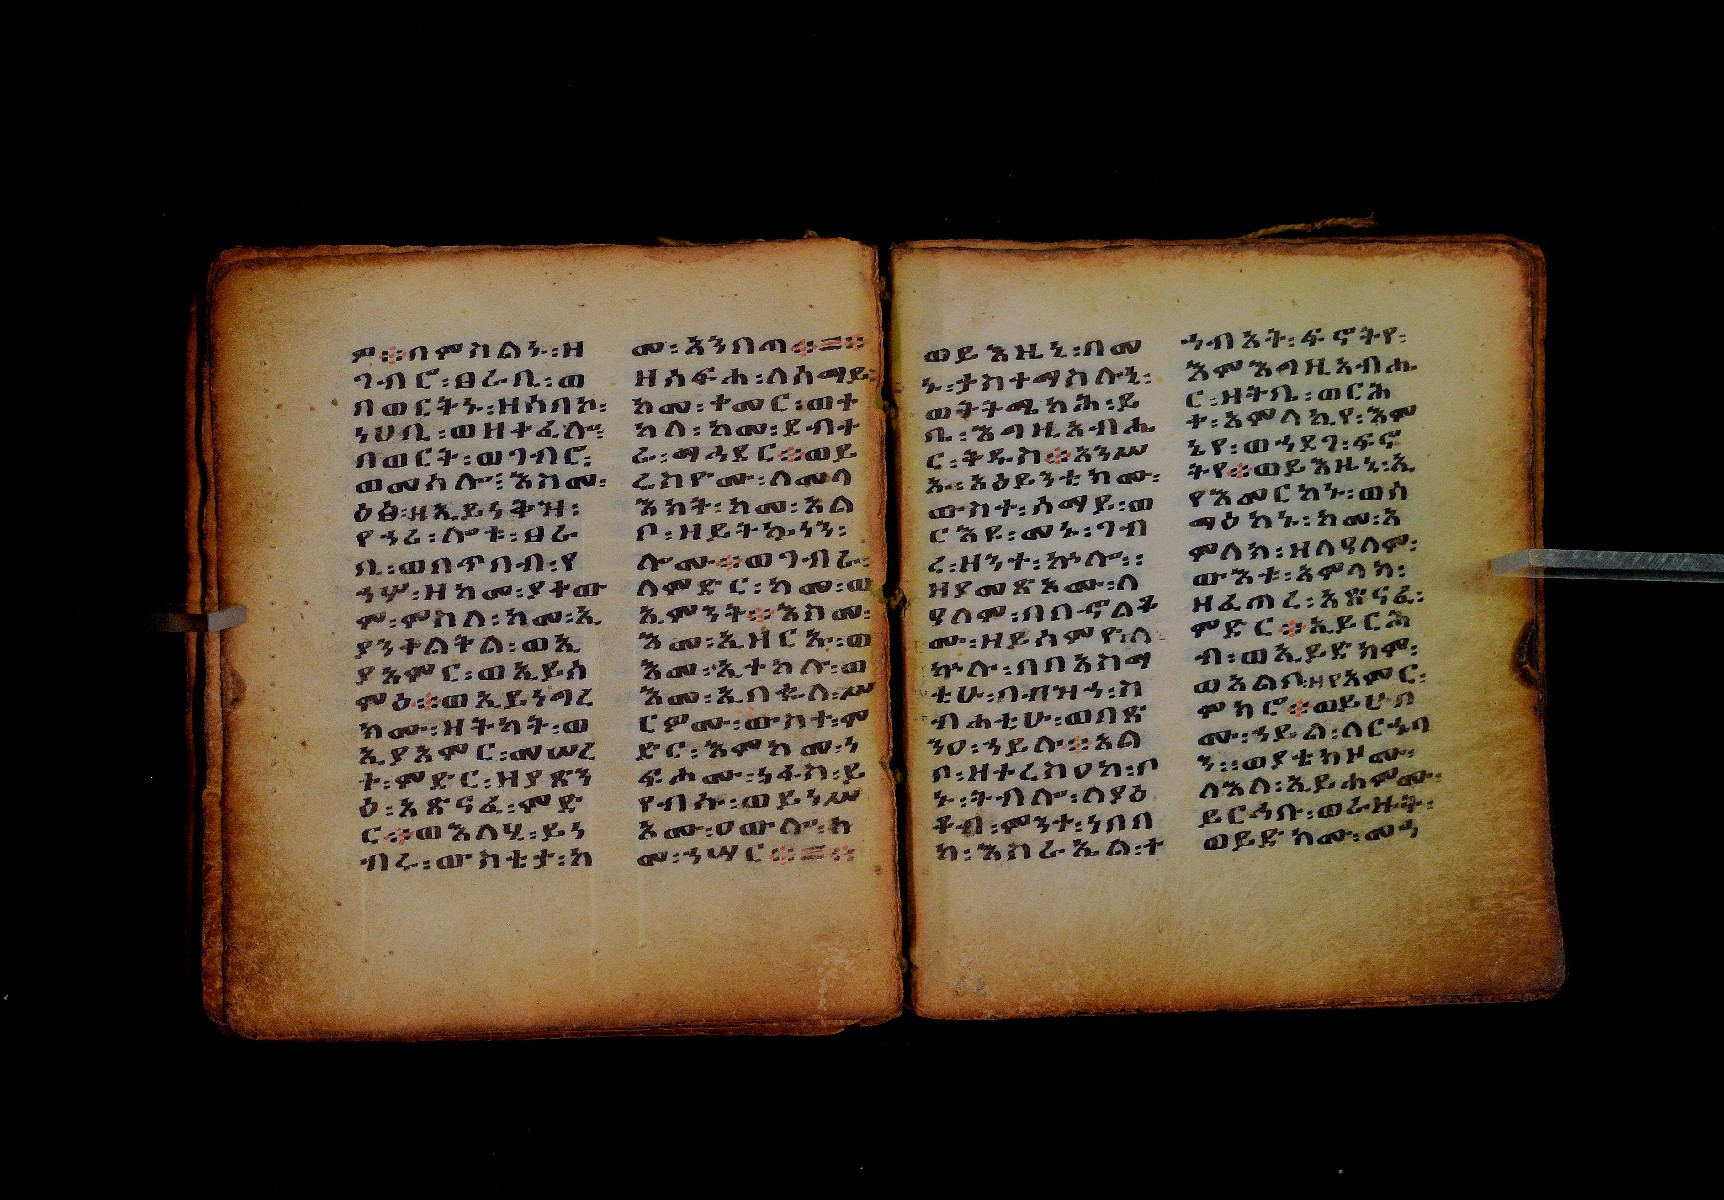 ም፨በምስልኑ፡ዘ
ገብሮ፡ፀራቢ፡ወ
በወርትኑ፡ዘሰበኮ፡
ነሀቢ፡ወዘተፈሎ፡
በወርት፡ወገብሮ፡
ወመሰሎ፡እስመ፡
ዕፅ፡ዘኢይነትዝ፡
የኀሪ፡ሎቱ፡ፀራ
ቢ፡ወበጥበብ፡የ
ኀሥ፡ዘከመ፡ያተው
ም፡ምስለ፡ከመ፡ኢ
ያንተልትል፡ወኢ
ያአምር፡ወኢይሰ
ምዕ፨ወኢይነግረ
ክሙ፡ዘትካት፡ወ
ኢያአምር፡መሠረ
ተ፡ምድር፡ዘያጽን
ዕ፡አጽናፈ፡ምድ
ር፨ወእለሂ፡ይነ
ብሩ፡ውስቴታ፡ከ
መ፡አንበጣ፨=፨
ዘሰፍሐ፡ለሰማይ፡
ከመ፡ተመር፡ወተ
ከለ፡ከመ፡ደብተ
ራ፡ማኅደር፨ወይ
ሬስዮሙ፡ለመላ
እክት፡ከመ፡አል
ቦ፡ዘይትኴነን፡
ሎሙ፨ወገብራ፡
ለምድር፡ከመ፡ወ
ኢምንት፨እስመ፡
እመ፡ኢዘርኡ፡ወ
እመ፡ኢተከሉ፡ወ
እመ፡ኢበቈለ፡ሥ
ርዎሙ፡ውስተ፡ም
ድር፡እምከመ፡ነ
ፍሐሙ፡ነፋስ፡ይ
የብሱ፡ወይነሥ
ኦሙ፡ዐውሎ፡ከ
መ፡ኀሣር፨=፨
ወይእዜኒ፡በመ
ኑ፡ታስተማስሉኒ፡
ወትትሜካሕ፡ይ
ቤ፡እግዚአብሔ
ር፡ቅዱስ፨አንሥ
ኡ፡አዕይንቲክሙ፡
ውስተ፡ሰማይ፡ወ
ርእዩ፡መኑ፡ገብ
ረ፡ዘንተ፡ኵሎ፡፡
ዘያመጽኦሙ፡ለ
ዓለም፡በበኍልቆ
ሙ፡ዘይሰምዮ፡ለ
ኵሉ፡በበአስማ
ቲሁ፡በብዝኀ፡ስ
ብሐቲሁ፡ወበጽ
ንዐ፡ኀይሉ፨አል
ቦ፡ዘተረስዐከ፡ቦ
ኑ፡ትብሎ፡ለያዕ
ቆብ፡ምንተ፡ነበበ
ከ፡እስራኤል፡ተ
ኀብአት፡ፍኖትየ፡
እምእግዚአብሔ
ር፡ዘትቤ፡ወርሕ
ተ፡አምላኪየ፡እም
ኔየ፡ወኀደገ፡ፍኖ
ትየ፨ወይእዜኒ፡ኢ
የአመርከኑ፡ወሰ
ማዕከኑ፡ከመ፡አ
ምላክ፡ዘለዓለም፡
ውእቱ፡አምላክ፡
ዘፈጠረ፡አጽናፈ፡
ምድር፨ኢይርኅ
ብ፡ወኢይደክም፡
ወአልቦ፡ዘየአምር፡
ምክሮ፨ወይሁብ
ሙ፡ኀይል፡ለርኁባ
ን፡፡ወያቴክዞሙ፡
ለእለ፡ኢይሐምሙ፡
ይርኅቡ፡ወራዙት፡
ወይደክሙ፡መኅ